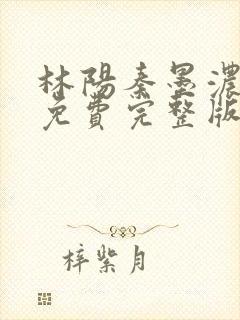 林陽秦墨濃
免費完整版
梓紫月